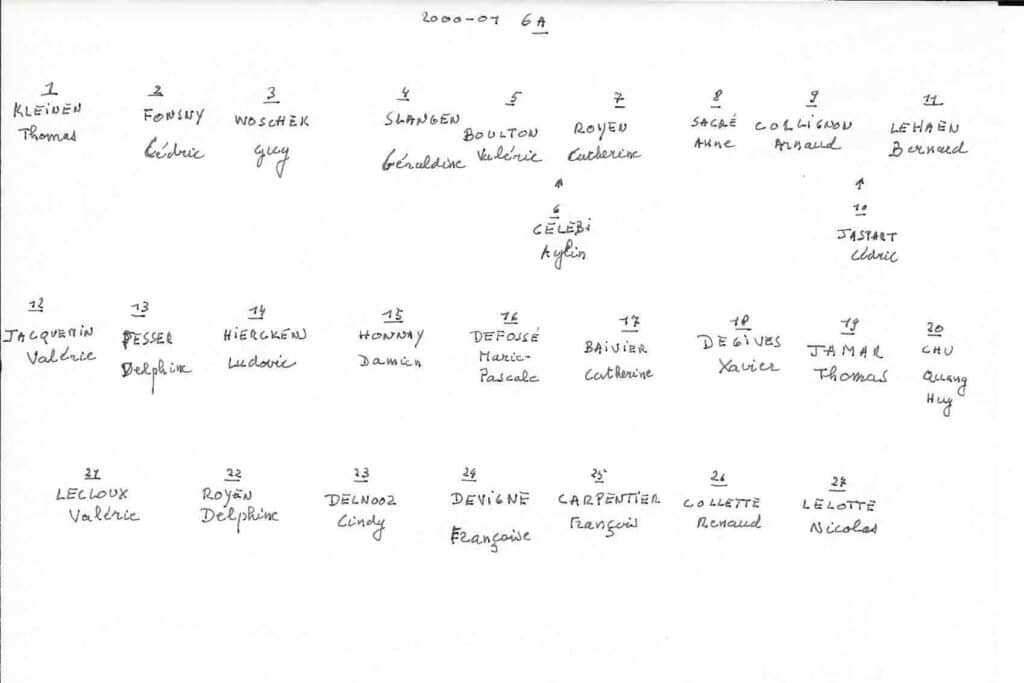 2000-01 6A
1 2 3 4 5 7 8 9 11
KLEINEN FONSNY WOSCHEK SLANGEN BOULTON ROYEN SACRÉ COLLIGNON LEHAEN
Thomas Cédric Guy Géraldine Valérie Catherine Anne Arnaud Bernard
6 10
CELEBi JASPART
Aylin Cédric
12 13 14 15 16 17 18 19 20
JACQUEMIN FESSER HIERCKENS HONNAY DEFOSSÉ BAIVIER DEGIVES JAMAR CHU
Valérie Delphine Ludovic Damien Marie- Catherine Xavier Thomas Quang
Pascale Huy
21 22 23 24 25 26 27
LECLOUX ROYEN DELNOOZ DEVIGNE CARPENTIER COLLETTE LELOTTE
Valérie Delphine Cindy Françoise François Renaud Nicolas